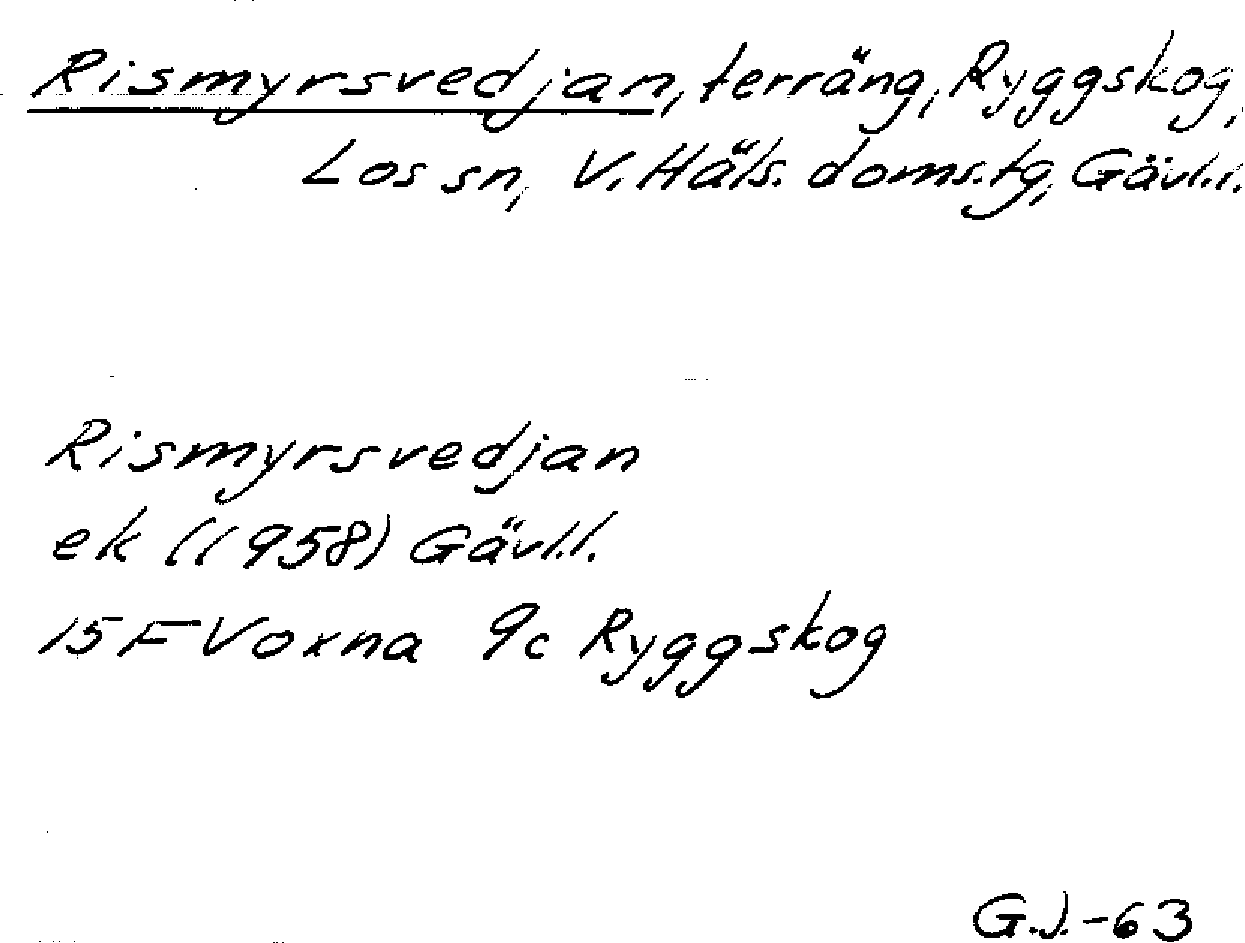 Rismyrsvedjan, terräng, Ryggskog,
Los sn, V. Häls. doms.tg, Gävl.l.
Rismyrsvedjan
ek (1958) Gävl.l.
15F Voxna 9c Ryggskog
G.J.-63